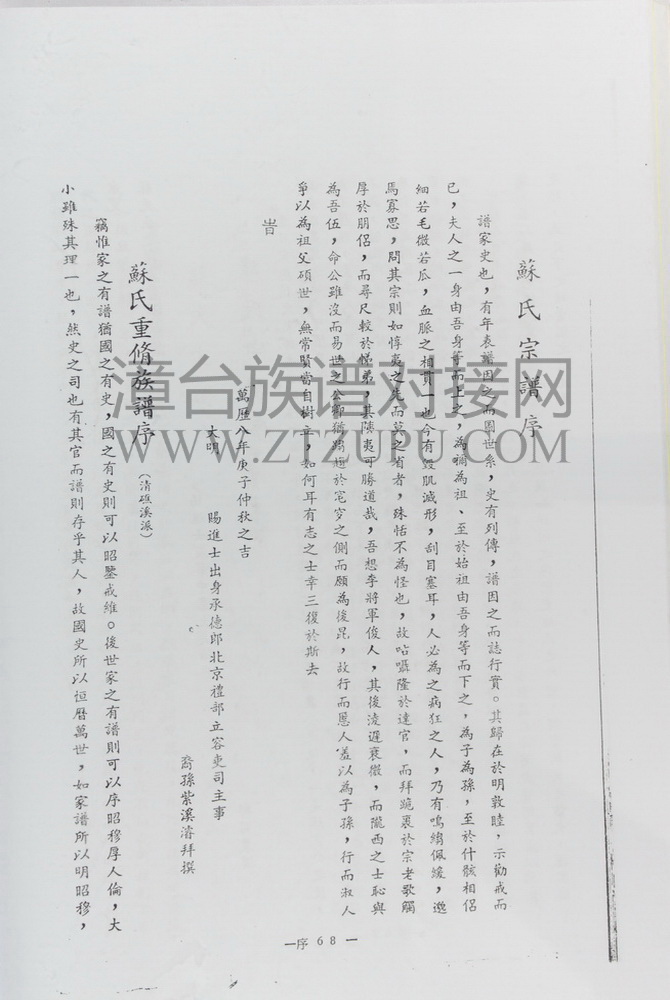 蘇氏宗譜序
譜家史也，有年表譜因之而圖世系，史有列傳，譜因之而誌行實。其歸在於明敦睦，示勸戒而
已，夫人之一身由吾身等而上之，為禰為祖、至於始祖由吾身等而下之，為子為孫，至於什骸相侶
細若毛微若瓜，血脈之相貫一也今有毀肌滅形，刮目塞耳，人必為之病狂之人，乃有鳴縐佩緩，邈
馬寡思，問其宗則如惇夷之先而莫之省者，殊恬不為怪也，故呫囁隆於達官，而拜跪衷於宗老歌觸
厚於朋侶，而尋尺較於悌弟，其陳夷可勝道哉，吾想李將軍俊人，其後淩遲衰微，而隴西之士恥與
為吾伍，命公雖沒而易世之公卿猶踴趨於宅穸之側而願為後昆，故行而慝人羞以為子孫，行而淑人
爭以為祖父碩世，無常賢當自樹立，如何耳有志之士幸三復於斯去
旹
萬歷八年庚子仲秋之吉
大明 賜進士出身承德郎北京禮部立容吏司主事
裔孫紫溪濬拜撰
蘇氏重脩族譜序
（清礁溪派）
竊惟家之有譜猶國之有史，國之有史則可以昭鑒戒維。後世家之有譜則可以序昭穆厚人倫，大
小雖殊其理一也，然史之司也有其官而譜則存乎其人，故國史所以恒曆萬世，如家譜所以明昭穆，
—序 68—
漳台族谱对接网
WWW.ZTZUPU.COM